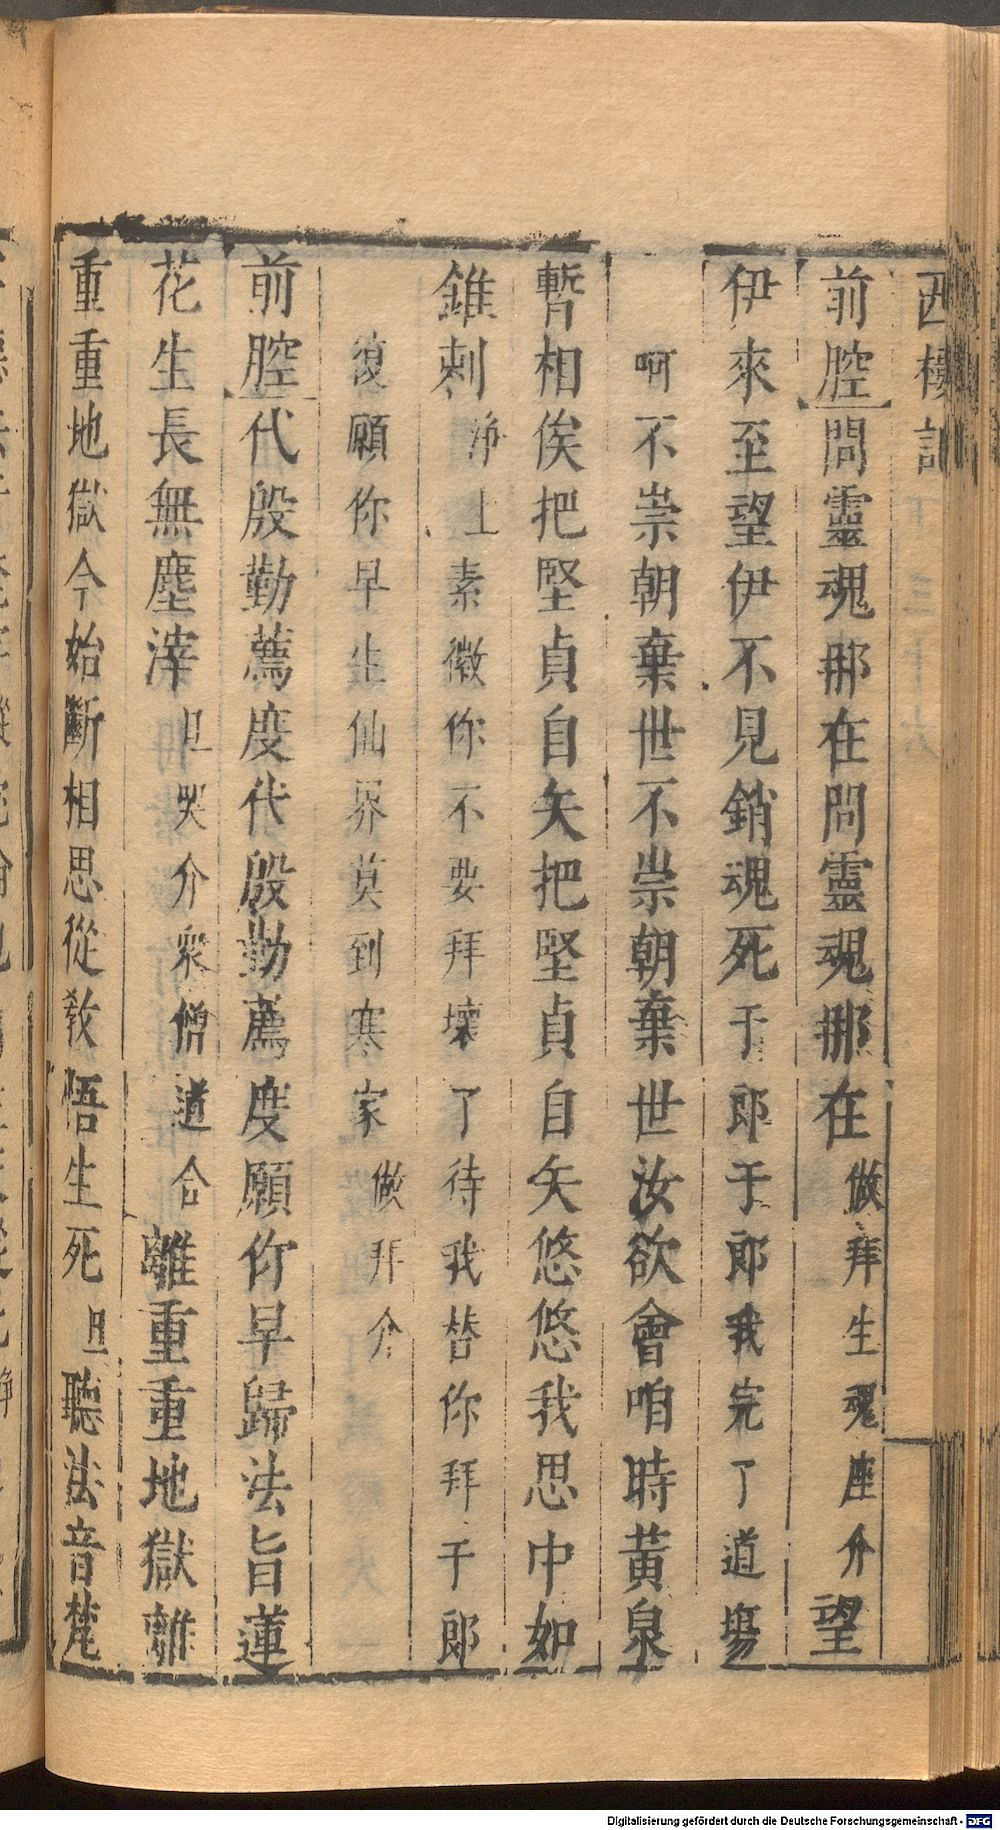 西樓記
前腔問靈魂那在問靈魂那在做拜生魂座介望
伊來至望伊不見銷魂死于郎于郎我完了道塲
呵不崇朝棄世不崇朝棄世汝欲會咱時黃泉
暫相俟把堅貞自矢把堅貞自矢悠悠我思中如
錐刺淨上素徽你不要拜壞了待我替你拜于郎
復願你早生仙界莫到寒家做拜介
前腔代殷勤薦度代殷勤薦度願你早歸法旨蓮
花生長無塵滓旦哭介衆僧道合離重重地獄離
重重地獄今始斷相思從教悟生死旦聽法音梵
Digitalisierung gefördert durch die Deutsche Forschungsgemeinschaft - DFG